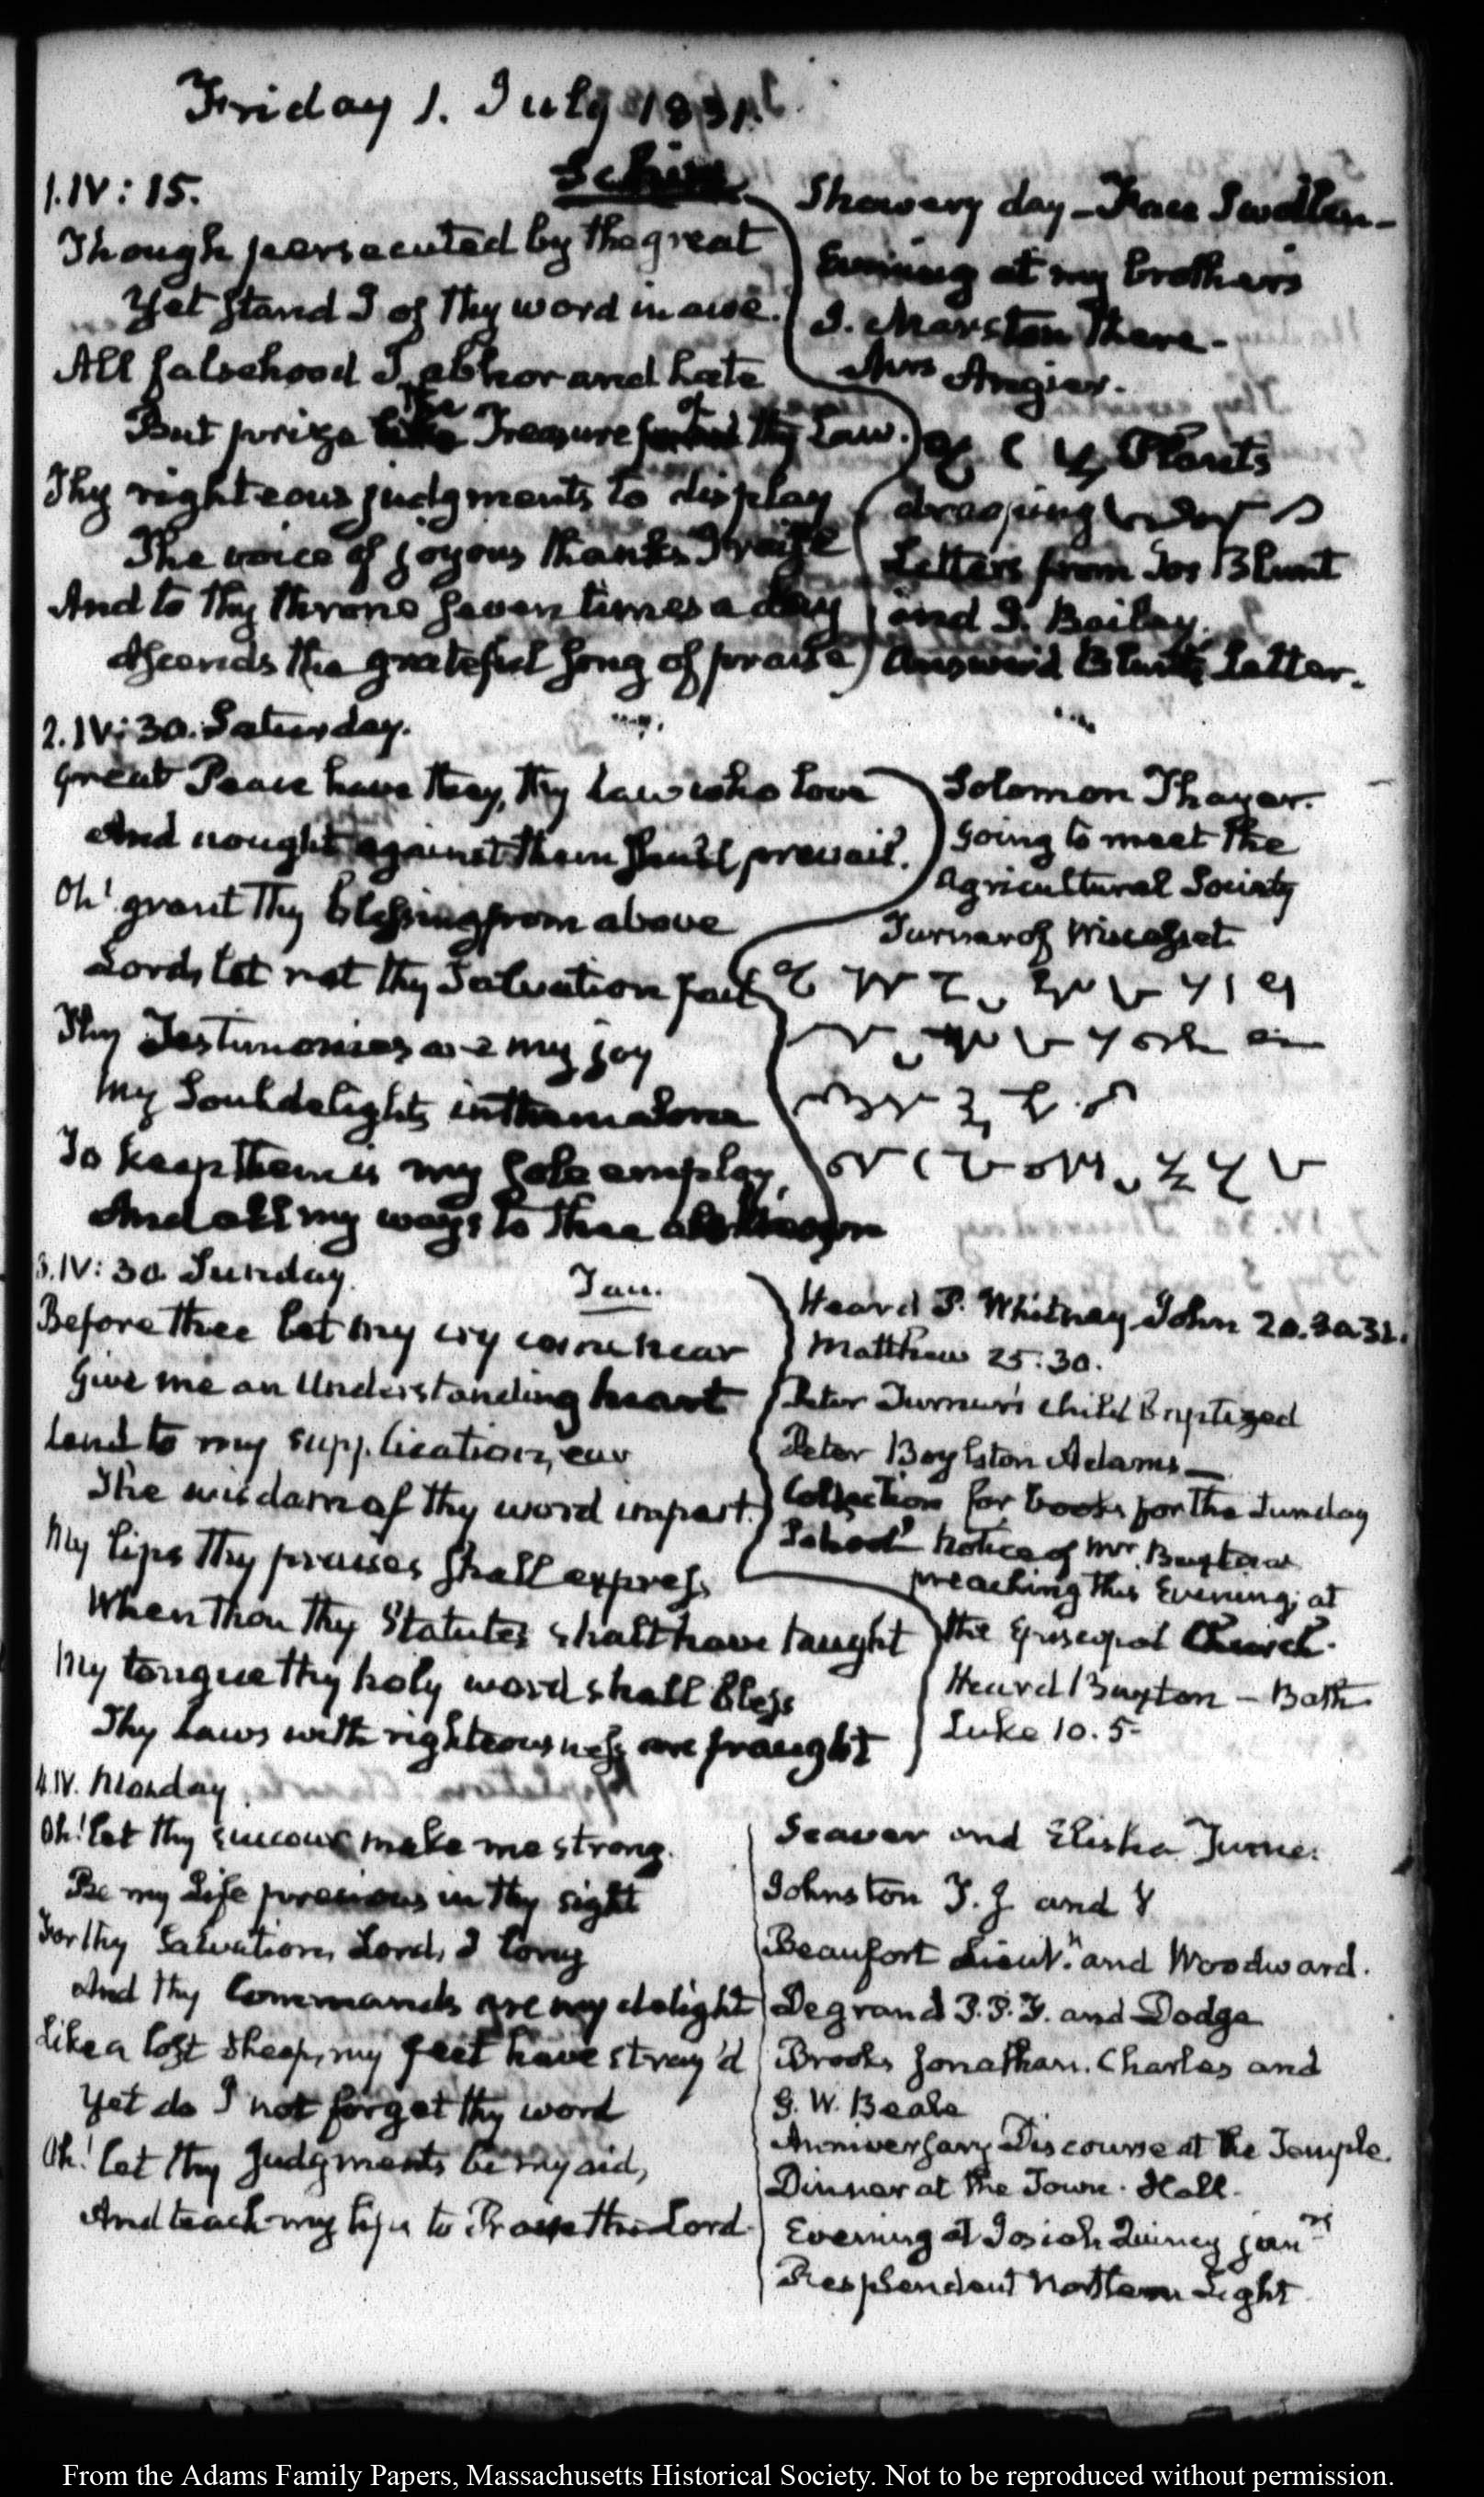 Friday 1. July 1831.
1.IV: 15.
Schin
Though persecuted by the great
Yet stand I of thy word in awe.
All falsehood I abhor and hate
But prize the Treasure of thy Law.
Thy righteous judgments to display
The voice of joyous thanks I raise
And to thy throne seven times a day
Ascends the grateful song of praise
Showery day – Face Swollen –
Evening at my brothers
J. Marston there –
Mrs Angier.
Plants
drooping
Letters from Jos Blunt
and J. Bailey.
Answer'd Blunts Letter.
2. IV: 30. Saturday.
Great Peace have they, thy Law who love
And nought against them shall prevail.
Oh! grant thy blessing from above
Lord, let not thy Salvation fail
Thy Testimonies are my joy
My Soul delights in them alone
To keep them is my sole employ
And all my ways to thee are known
Solomon Thayer.
Going to meet the
Agricultural Society
Turner of Wiscasset.
3. IV: 30 Sunday.
Tau.
Before thee let my cry come near
Give me an Understanding heart
Lend to my supplication, ear
The wisdom of thy word impart.
My lips thy praises shall express
When thou thy Statutes shalt have taught
My tongue thy holy word shall bless
Thy Laws with righteousness are fraught
Heard P. Whitney John 20. 30 31.
Matthew 25. 30.
Peter Turner's child Baptized
Peter Boylston Adams —
Collection for books for the Sunday
School Notice of Mr Buxton
preaching this Evening, at
the Episcopal Church.
Heard Buxton – Bath
Luke 10. 5
4. IV. Monday
Oh! let thy succour make me strong.
Be my Life precious in thy sight
For thy Salvation, Lord, I long
And thy Commands are my delight
Like a lost sheep, my feet have stray'd
Yet do I not forget thy word
Oh! let thy Judgments be my aid,
And teach my lips to Praise the Lord.
Seaver and Elisha Turner
Johnston T. J and Y
Beaufort Lieut. and Woodward.
Degrand P.P.F. and Dodge
Brooks Jonathan. Charles and
G. W. Beale
Anniversary Discourse at the Temple.
Dinner at the Town. Hall.
Evening at Josiah Quincy junr
Resplendent Northern Light
From the Adams Family Papers, Massachusetts Historical Society. Not to be reproduced without permission.